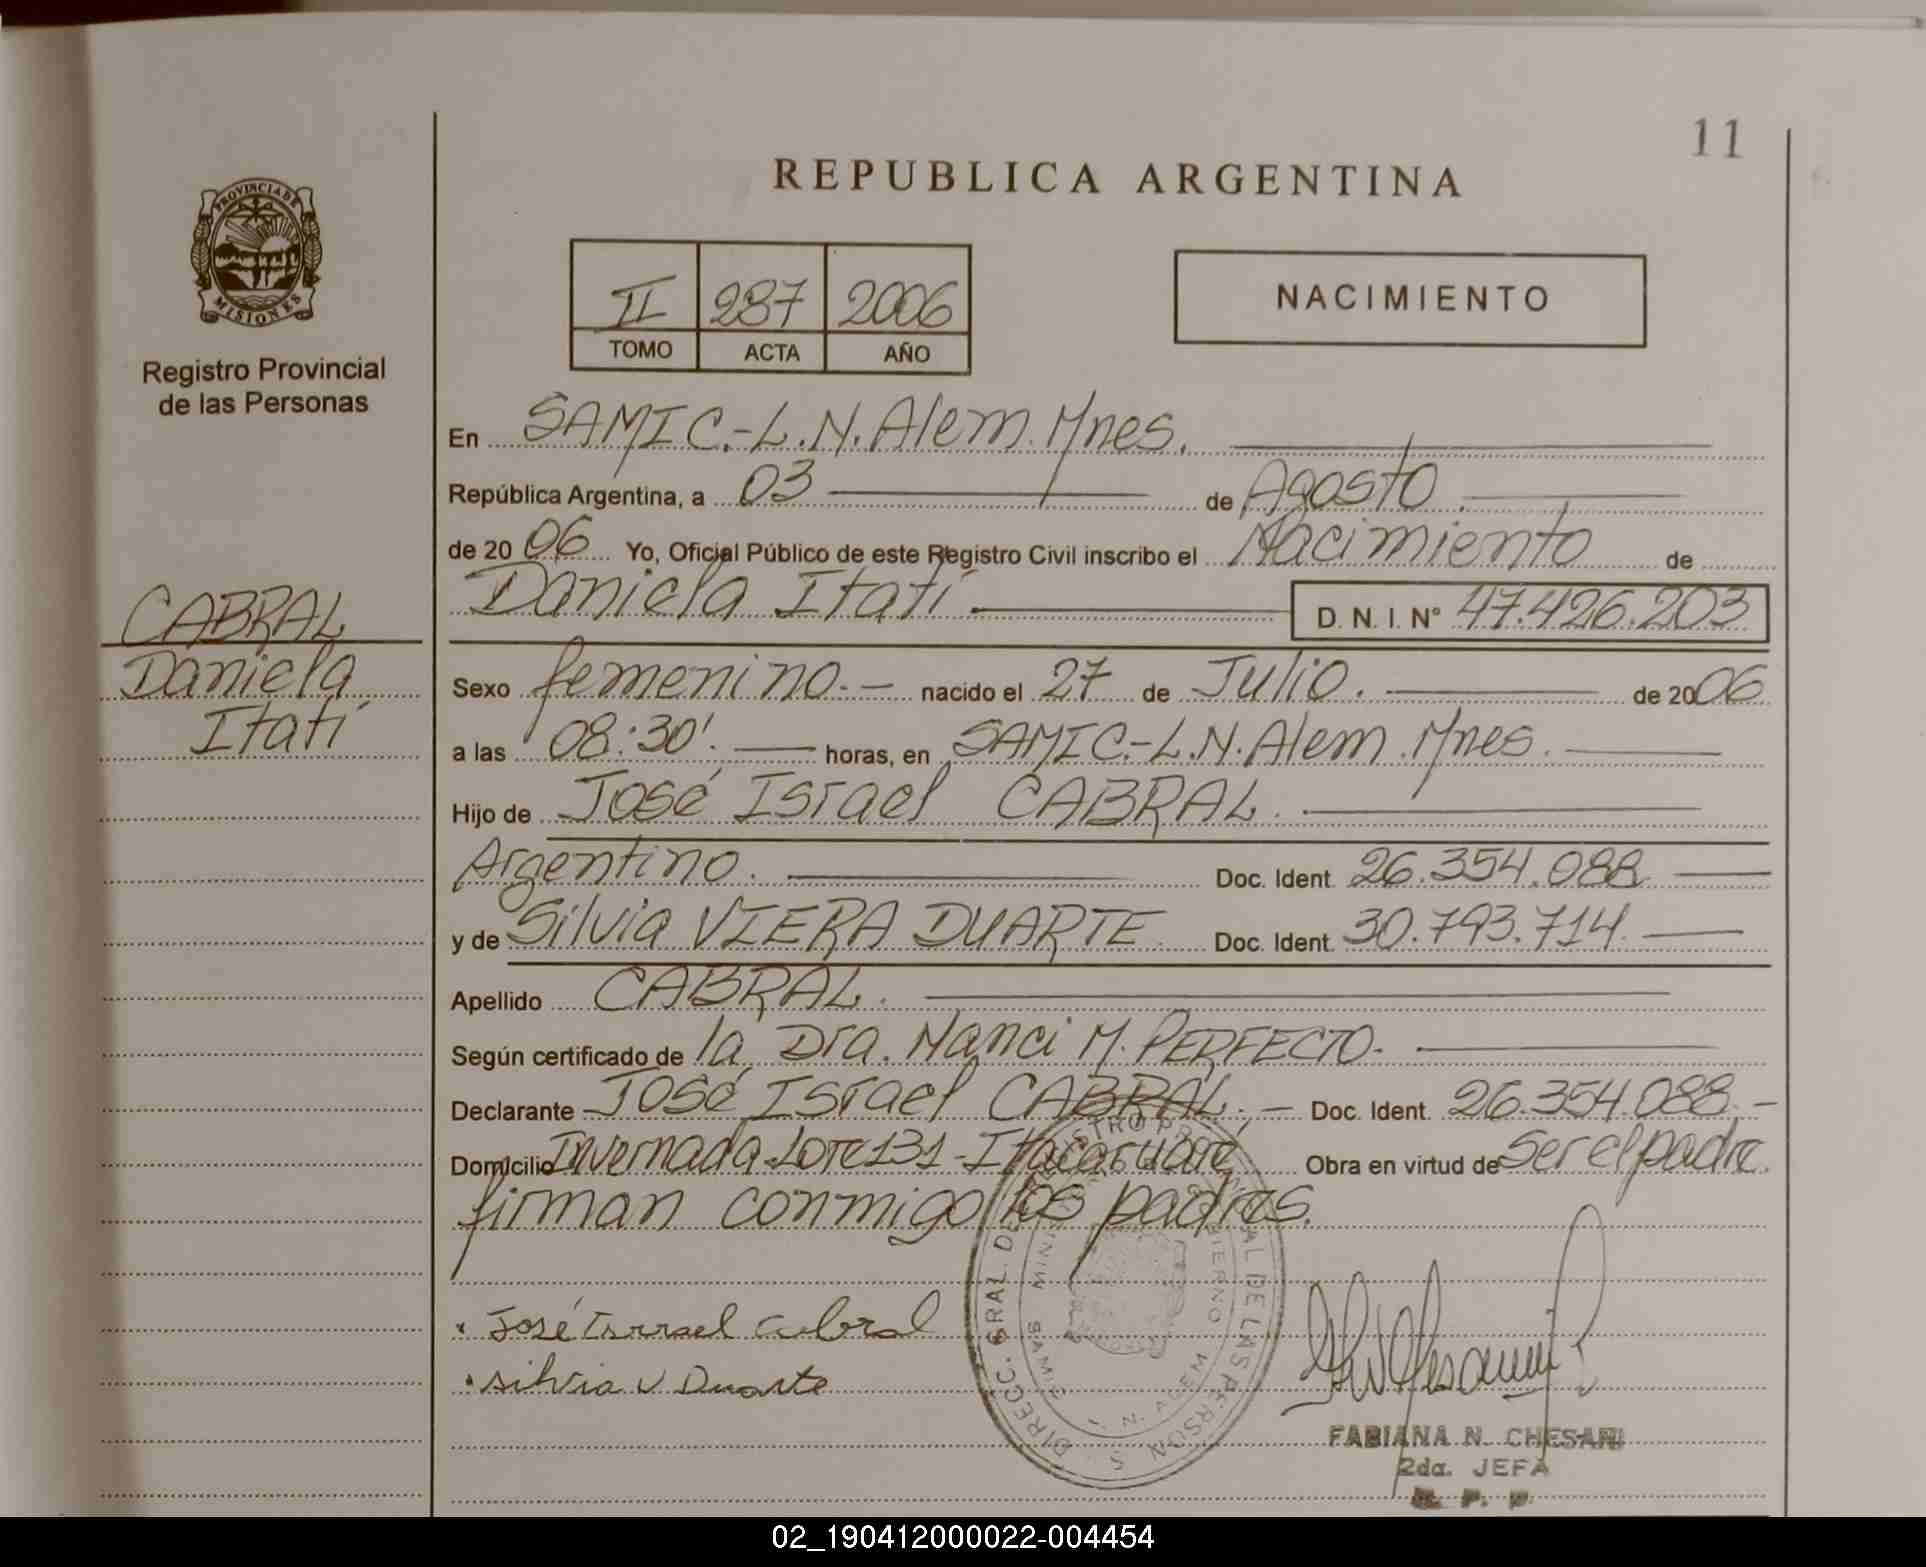 11
REPUBLICA ARGENTINA
PROVINCIA DE
MISIONES
Registro Provincial
de las Personas
II 287 2006
TOMO ACTA AÑO
NACIMIENTO
En SAMIC.-L.N.Alem.Mnes.
República Argentina, a 03 de Agosto
de 2006 Yo, Oficial Público de este Registro Civil inscribo el Nacimiento de
Daniela Itatí D. N. I. Nº 47.426.203
CABRAL
Daniela
Itatí
Sexo femenino.- nacido el 27 de Julio. de 2006
a las 08:30'. horas, en SAMIC.-L.N.Alem.Mnes.
Hijo de José Israel CABRAL.
Argentino. Doc. Ident. 26.354.088
y de Silvia VIERA DUARTE Doc. Ident. 30.793.714.
Apellido CABRAL.
Según certificado de la Dra. Nanci M. PERFECTO.
Declarante José Israel CABRAL,- Doc. Ident. 26.354.088.-
Domicilio Invernada Lote 131-Itacaruaré, Obra en virtud de Ser el padre.
firman conmigo los padres.
José Israel Cabral
Silvia V Duarte
FABIANA N. CHESANI
2da. JEFA
R. P. P.
02_190412000022-004454